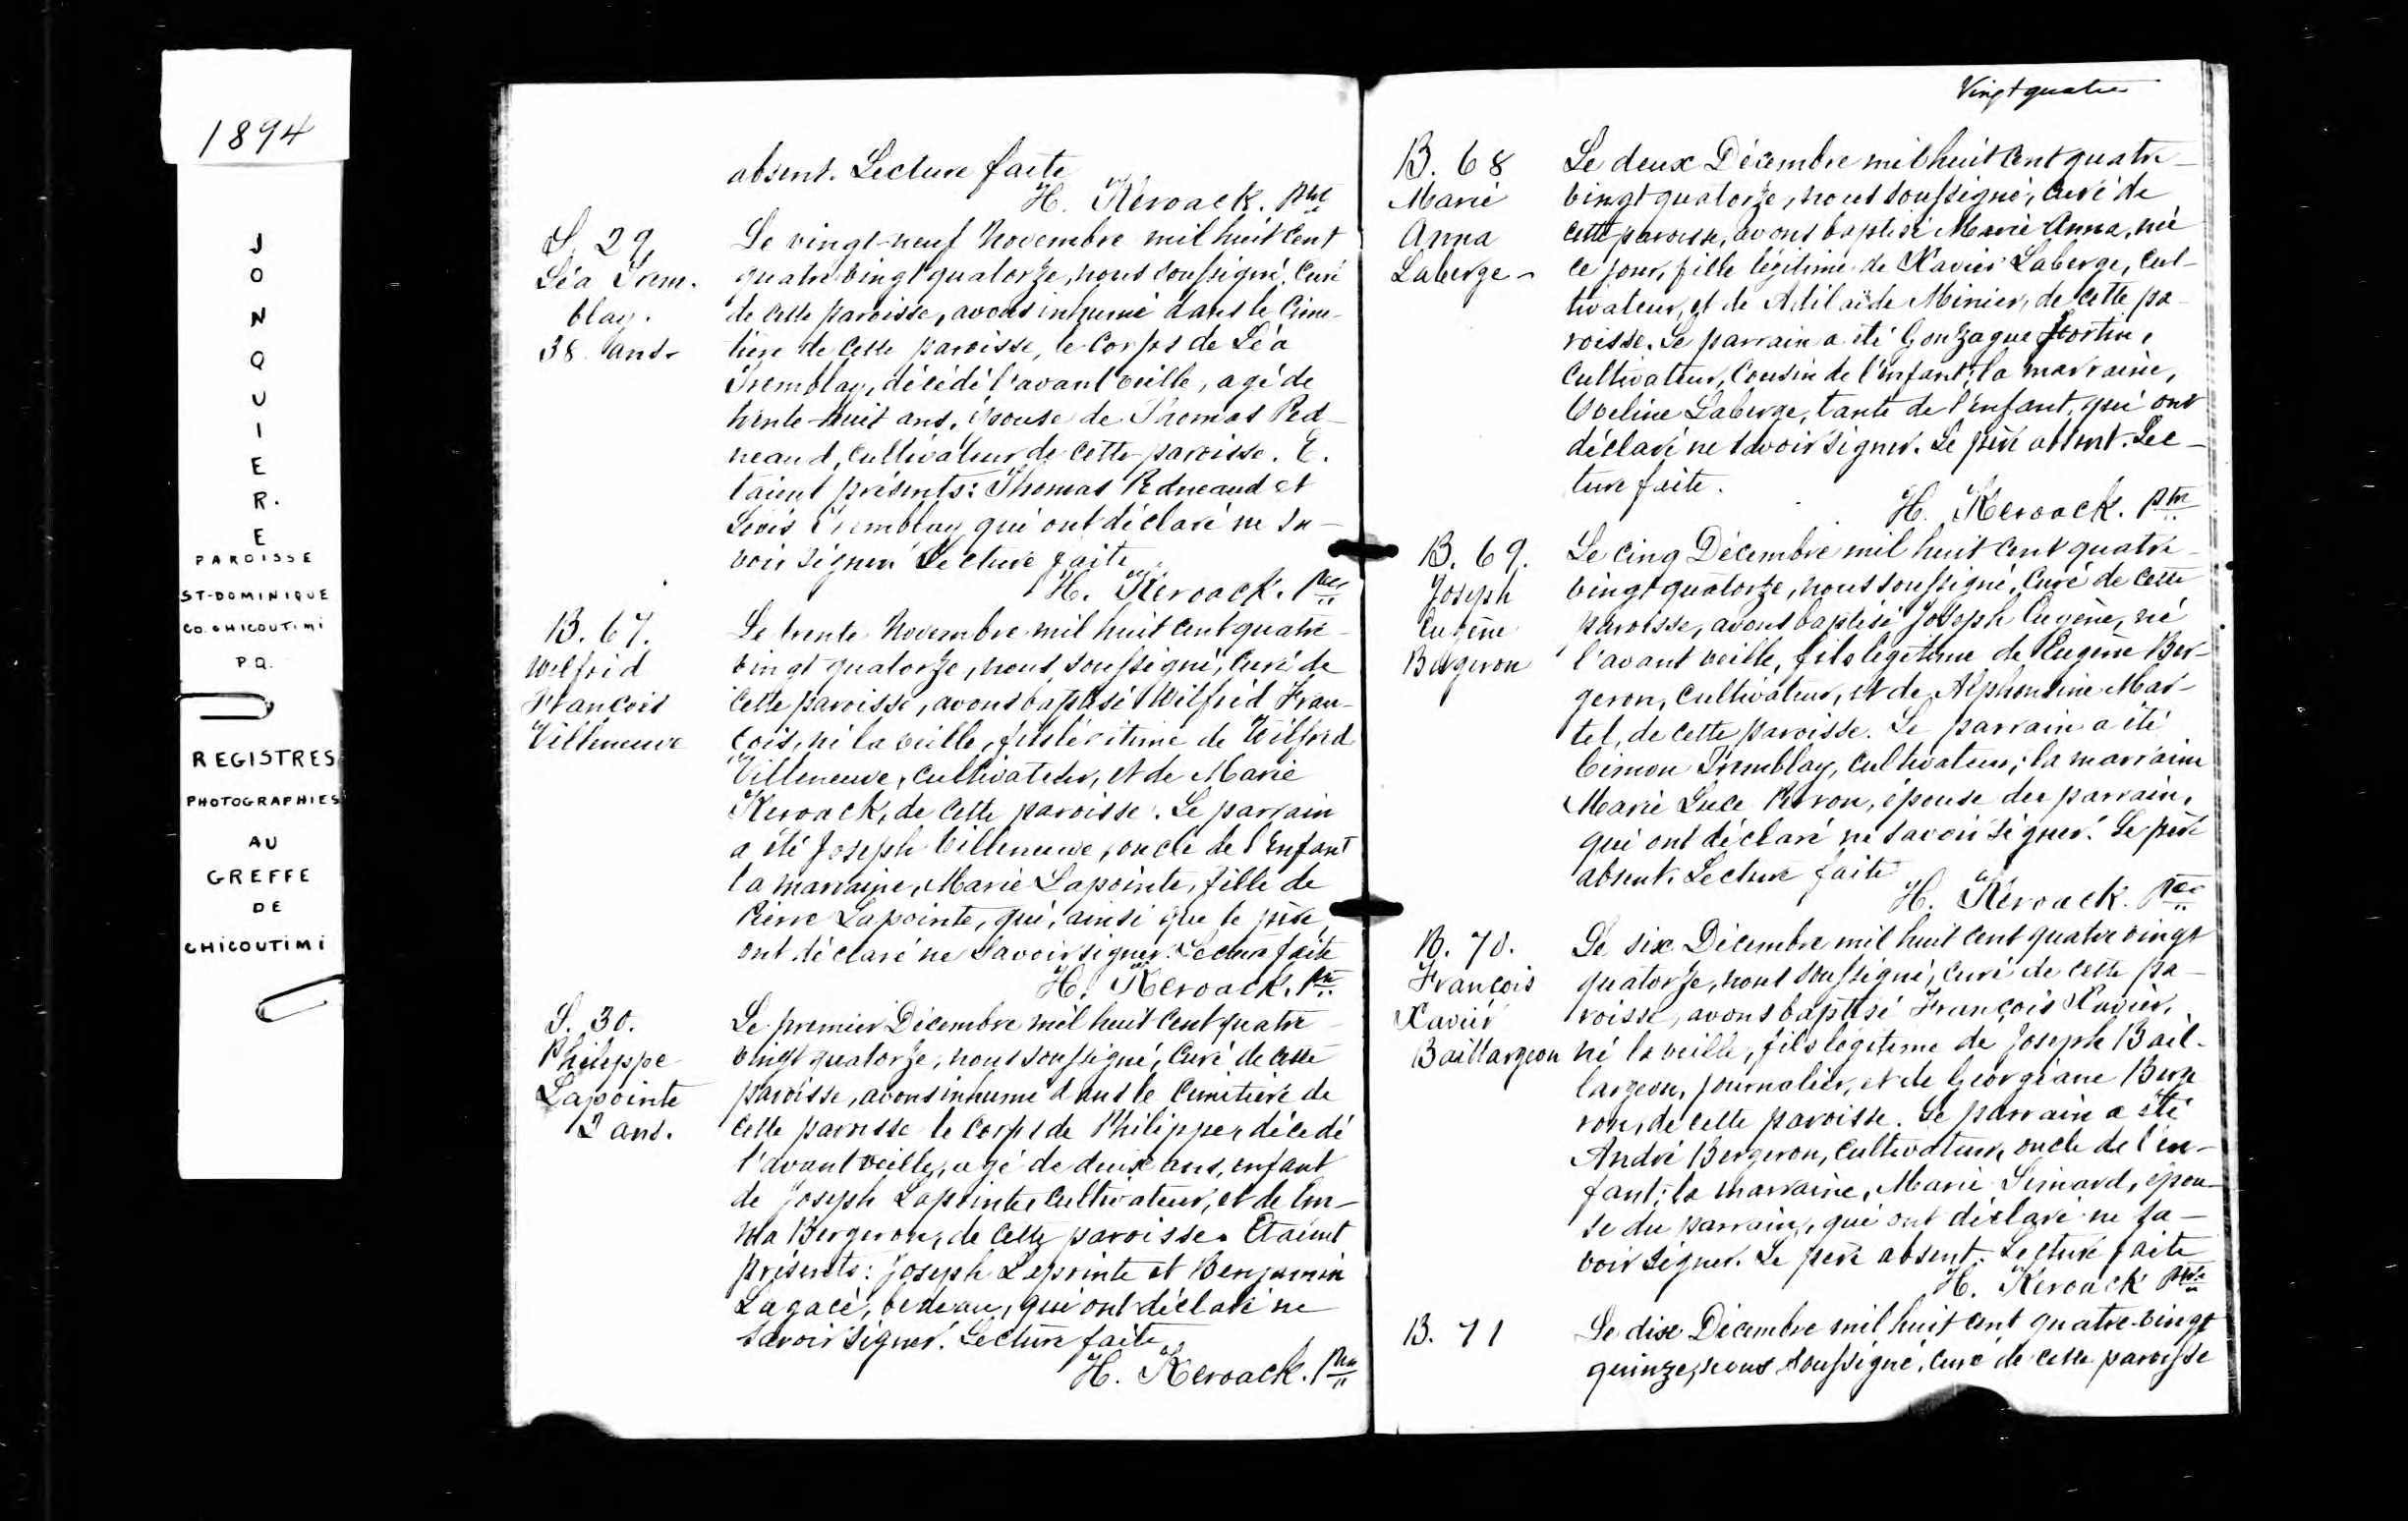 1894
JONQUIERE.
PAROISSE
ST-DOMINIQUE
CO. CHICOUTIMI
P.Q.
REGISTRES
PHOTOGRAPHIES
AU
GREFFE
DE
CHICOUTIMI
absent. Lecture faite
H. Keroack. Ptre
S. 29
Léa Trem-
blay.
38 ans.
Le vingt-neuf Novembre mil huit cent
quatre vingt quatorze, nous soussigné, Curé
de cette paroisse, avons inhumé dans le Cime-
tière de cette paroisse, le Corps de Léa
Tremblay, décédé l'avant veille, agé de
trente-huit ans, épouse de Thomas Ped-
neaud, cultivateur de cette paroisse. E.
taient présents: Thomas Pedneaud et
Tremblay qui ont déclaré ne sa-
voir signer. Lecture faite
H. Keroack. Ptre
B. 67.
Wilfrid
François
Villeneuve
Le trente Novembre mil huit cent quatre
vingt quatorze, nous soussigné, Curé de
cette paroisse, avons baptisé Wilfrid Fran-
çois, né la veille, fils légitime de Wilfrid
Villeneuve, cultivateur, et de Marie
Keroack, de cette paroisse. Le parrain
a été Joseph Villeneuve, oncle de l'enfant
la marraine, Marie Lapointe, fille de
Pierre Lapointe, qui, ainsi que le père,
ont déclaré ne savoir signer. Lecture faite
H. Keroack. Ptre
S. 30.
Philippe
Lapointe
2 ans.
Le premier Décembre mil huit cent quatre
vingt quatorze, nous soussigné, Curé de cette
paroisse, avons inhumé dans le Cimetière de
cette paroisse le Corps de Philippe, décédé
l'avant veille, agé de deux ans, enfant
de Joseph Lapointe, cultivateur, et de Em-
ma Bergeron, de cette paroisse. Etaient
présents: Joseph Lapointe et Benjamin
Lagacé, bedeau, qui ont déclaré ne
savoir signer. Lecture faite
H. Keroack. Ptre
Vingt quatre
B. 68
Marie
Anna
Laberge-
Le deux Décembre mil huit cent quatre-
vingt quatorze, nous soussigné, curé de
cette paroisse, avons baptisé Marie Anna, née
ce jour, fille légitime de Xavier Laberge, cul-
tivateur, et de Adélaïde Minier, de cette pa-
roisse. Le parrain a été Gonzague Fortin,
cultivateur, Cousin de l'enfant; la marraine,
Eveline Laberge, tante de l'enfant, qui ont
déclaré ne savoir signer. Le père absent. Lec-
ture faite.
H. Keroack. Ptre
B. 69.
Joseph
Eugène
Bergeron
Le cinq Décembre mil huit cent quatre-
vingt quatorze, nous soussigné, Curé de cette
paroisse, avons baptisé Joseph Eugène, né
l'avant veille, fils légitime de Eugène Ber-
geron, cultivateur, et de Alphonsine Mar-
tel, de cette paroisse. Le parrain a été
Cimon Tremblay, cultivateur; la marraine
Marie Luce Perron, épouse du parrain,
qui ont déclaré ne savoir signer. Le père
absent. Lecture faite
H. Keroack. Ptre
B. 70.
François
Xavier
Baillargeon
Le six Décembre mil huit cent quatre vingt
quatorze, nous soussigné, curé de cette pa-
roisse, avons baptisé François Xavier,
né la veille, fils légitime de Joseph Bail-
largeon, journalier, et de Georgiane Berge
ron, de cette paroisse. Le parrain a été
André Bergeron, cultivateur, oncle de l'en-
fant; la marraine, Marie Simard, épou-
se du parrain, qui ont déclaré ne sa-
voir signer. Le père absent. Lecture faite
H. Keroack Ptre
B. 71
Le dix Décembre mil huit cent quatre-vingt
quinze, nous soussigné, curé de cette paroisse